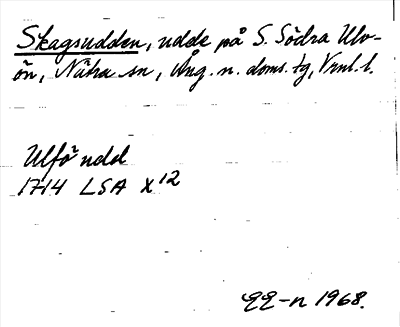 Skagsudden, udde på S. Södra Ulv-
ön, Nätra sn, Ång. n. doms. tg, Vrnl. l.
Ulfö udd
1714 LSA X12
EE-n 1968.